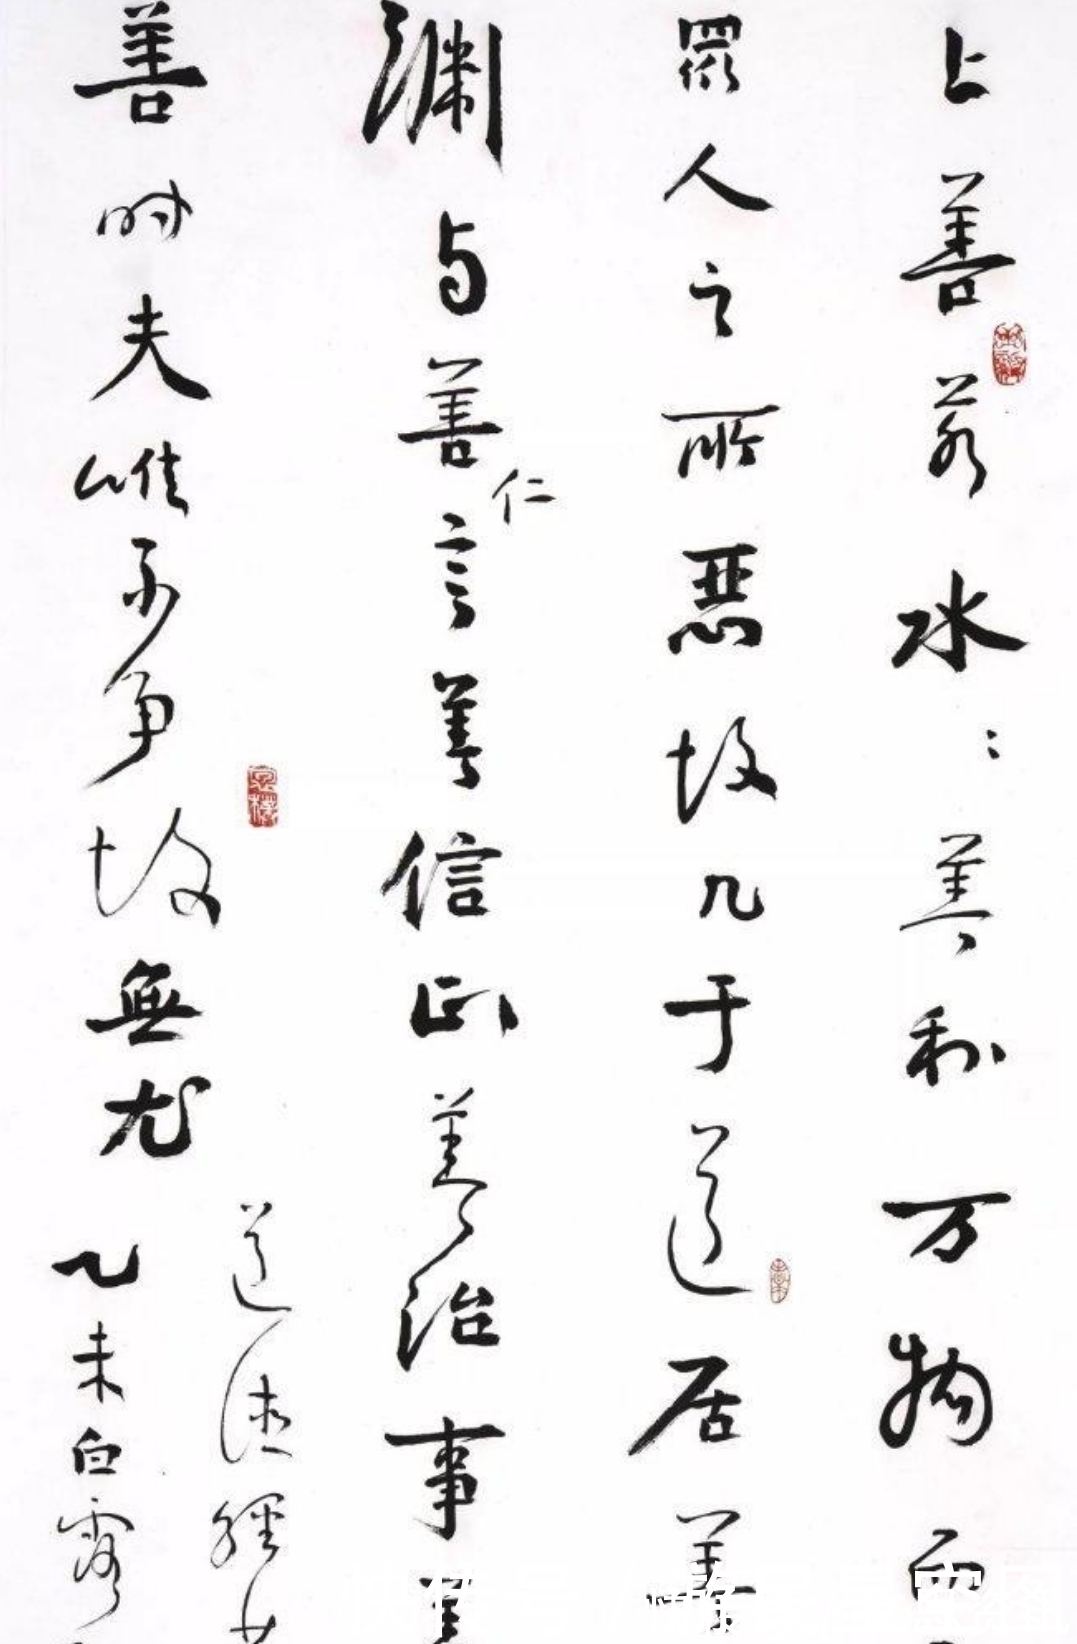 上善若水〻善利万物而
眾人之所惡故几于道居善
渊与善仁言善信正善治事善
善时夫唯不争故無尤
道德經
乙未白露